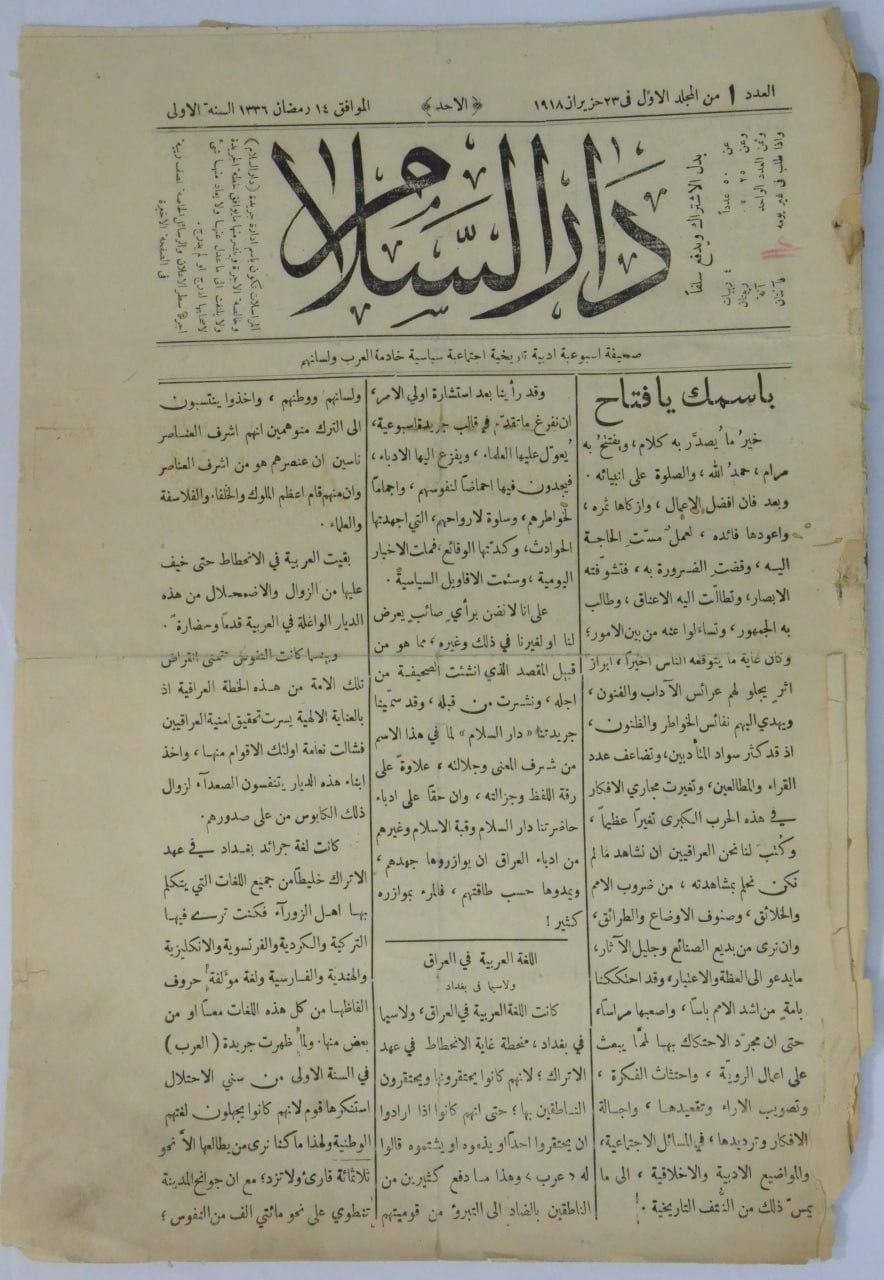 العدد ١ من المجلد الاوّل فى ٢٣ حزيران ١٩١٨
﴿ الاحد ﴾
الموافق ١٤ رمضان ١٣٣٦ السنة الاولى
بدل الاشتراك ويدفع سلفاً
عن ٥٠ عدداً ٤ ربيات
وعن ٢٥ ٠ ربيتان
وثمن العدد الواحد آنة
واذا طلب فى غير يومه فآنتان
دار السلام
المراسلات تكون باسم ادارة جريدة (دار السلام)
وخالصة الاجرة وينشر منها مايوافق خطة الجريدة
ولا يلتفت الى ماعدل عنها ولا يعاد منها شىء
لاصحابها ادرج او لم يدرج .
اجرة سطر الاعلان والرسائل الخاصة نصف ربية
فى الصفحة الاخيرة
صحيفة اسبوعية ادبية تاريخية اجتماعية سياسية خادمة العرب ولسانهم
باسمك يا فتاح
خيرُ ما يُصدَّر به كلام، ويفتتحُ به
مرام، حمدُ الله، والصلوة على انبيائه .
وبعد فان افضل الاعمال، وازكاها ثمره،
واعودها فائده، لعملٌ مسّت الحاجة
اليه، وقضت الضرورة به، فتشوّفته
الابصار، وتطالّت اليه الاعناق، وطالب
به الجمهور، وتساءلوا عنه من بين الامور؛
وكان غاية ما يتوقعه الناس اخيراً، ابرازُ
اثرٍ يجلو لهم عرائس الآداب والفنون،
ويهدي اليهم نفائس الخواطر والظنون،
اذ قد كثر سواد المتأدبين، وتضاعف عدد
القراء والمطالعين، وتغيرت مجاري الافكار
في هذه الحرب الكبرى تغيراً عظيماً،
وكُتبَ لنا نحن العراقيين ان نشاهد مالم
نكن نحلم بمشاهدته، من ضروب الامم
والخلائق، وصنوف الاوضاع والطرائق،
وان نرى من بديع الصنائع وجليل الآثار،
مايدعو الى العظة والاعتبار، وقد احتككنا
بامةٍ من اشد الامم باساً، واصعبها مراساً،
حتى ان مجرّد الاحتكاك بها لممّا يبعث
على اعمال الرويّة، واحتثاث الفكرة،
وتصويب الاراء وتقعيدها، واجالة
الافكار وترديدها، في المسائل الاجتماعية،
والمواضيع الادبية والاخلاقية، الى ما
يمسّ ذلك من النُتف التاريخية .
وقد رأينا بعد استشارة اولي الامر،
ان نفرغ ماتقدّم في قالب جريدة اسبوعية،
يُعوّل عليها العلماء، ويفزع اليها الادباء،
فيجدون فيها احماضاً لنفوسهم، واجماماً
لخواطرهم، وسلوة لارواحهم، التي اجهدتها
الحوادث، وكدّتها الوقائع، فملت الاخبار
اليومية، وسئمت الاقاويل السياسية .
على انا لا نضن برأي صائب يعرض
لنا او لغيرنا في ذلك وغيره، مما هو من
قبيل المقصد الذي انشئت الصحيفة من
اجله، ونشرت من قبله، وقد سمّينا
جريدتنا «دار السلام» لما في هذا الاسم
من شرف المعنى وجلالته، علاوةً على
رقة اللفظ وجزالته، وان حقاً على ادباء
حاضرتنا دار السلام وقبة الاسلام وغيرهم
من ادباء العراق ان يوازروها جهدهم،
ويمدوها حسب طاقتهم، فالمرء بموازره
كثير !
اللغة العربية في العراق
ولاسيما فى بغداد
كانت اللغة العربية في العراق، ولاسيما
في بغداد، منحطة غاية الانحطاط في عهد
الاتراك؛ لانهم كانوا يحتقرونها ويحتقرون
الناطقين بها؛ حتى انهم كانوا اذا ارادوا
ان يحتقروا احداً او يذموه او يشتموه قالوا
له «عرب» وهذا مما دفع كثيرين من
الناطقين بالضاد الى التبرؤ من قوميتهم
ولسانهم ووطنهم، واخذوا ينتسبون
الى الترك متوهمين انهم اشرف العناصر
ناسين ان عنصرهم هو من اشرف العناصر
وان منهم قام اعظم الملوك والخلفاء والفلاسفة
والعلماء .
بقيت العربية في الانحطاط حتى خيف
عليها من الزوال والاضمحلال من هذه
الديار الواغلة في العربية قدماً وحضارةً .
وبينما كانت النفوس تتمنى انقراض
تلك الامة من هذه الخطة العراقية اذ
بالعناية الالهية يسرت تحقيق امنية العراقيين
فشالت نعامة اولئك الاقوام منها، واخذ
ابناء هذه الديار يتنفسون الصعدآء لزوال
ذلك الكابوس من على صدورهم.
كانت لغة جرائد بغداد في عهد
الاتراك خليطاً من جميع اللغات التي يتكلم
بها اهل الزورآء فكنت ترى فيها
التركية والكردية والفرنسوية والانكليزية
والهندية والفارسية ولغة مؤلفة حروف
الفاظها من كل هذه اللغات معاً او من
بعض منها. ولما ظهرت جريدة (العرب)
في السنة الاولى من سني الاحتلال
استنكرها قوم لانهم كانوا يجهلون لغتهم
الوطنية ولهذا ما كنا نرى من يطالعها الاّ نحو
ثلاثمائة قارئ ولا تزد؛ مع ان جوانح المدينة
تنطوي على نحو مائتي الف من النفوس؛